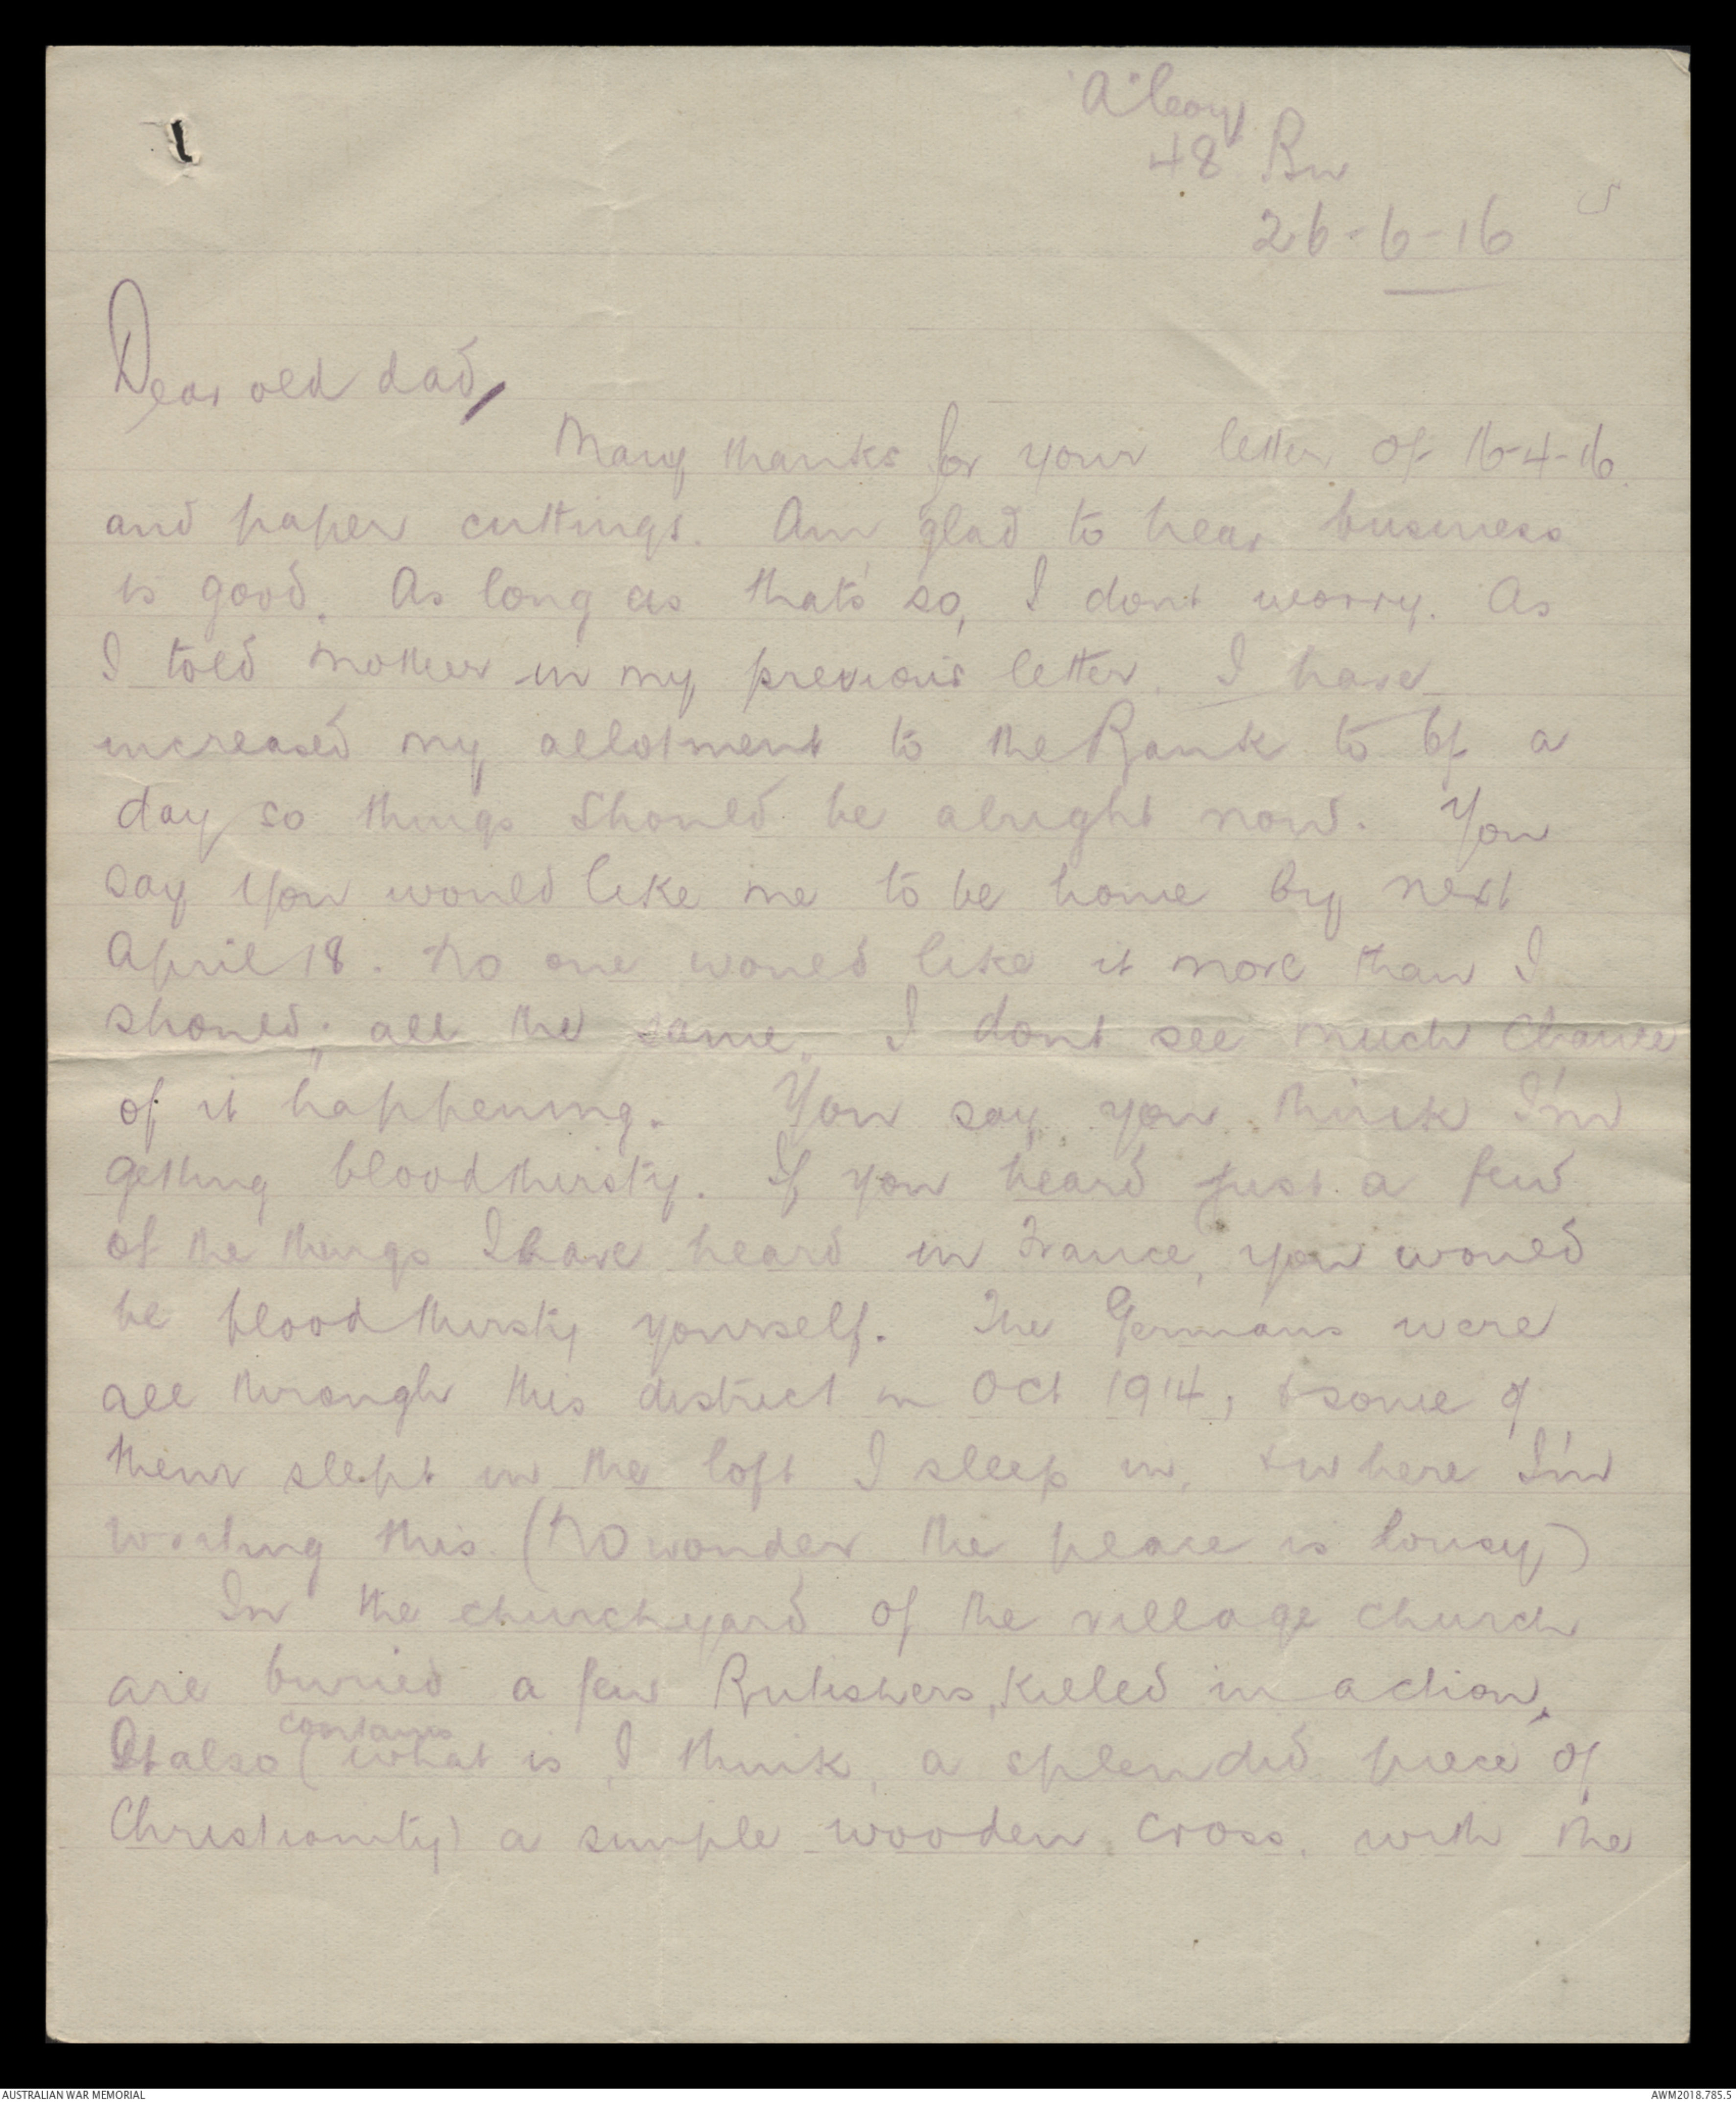 "A" Coy
48 Bn
26-6-16
Dear old dad,
Many thanks for your letter of 16-4-16
and paper cuttings. Am glad to hear business
is good. As long as that's so, I dont worry. As
I told mother in my previous letter, I have
increased my allotment to the Bank to 6/ a
day so things should be alright now. You
say you would like me to be home by next
April 18. No one would like it more than I
should; all the same, I dont see much chance
of it happening. You say you think I'm
getting bloodthirsty. If you heard just a few
of the things I have heard in France, you would
be bloodthirsty yourself. The Germans were
all through this district in Oct 1914, & some of
them slept in the loft I sleep in, & where I'm
writing this. (No wonder the place is lousy)
In the churchyard of the village church
are buried a few Britishers, killed in action.
It also contains (what is I think, a splendid piece of
Christianity) a simple wooden cross, with the
AUSTRALIAN WAR MEMORIAL
AWM2018.785.5